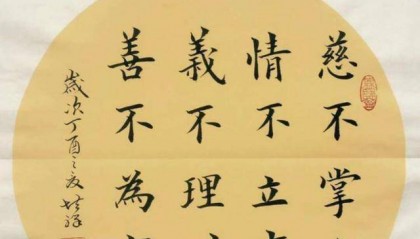 慈不掌
情不立
義不理
善不為
歲次丁酉之夏